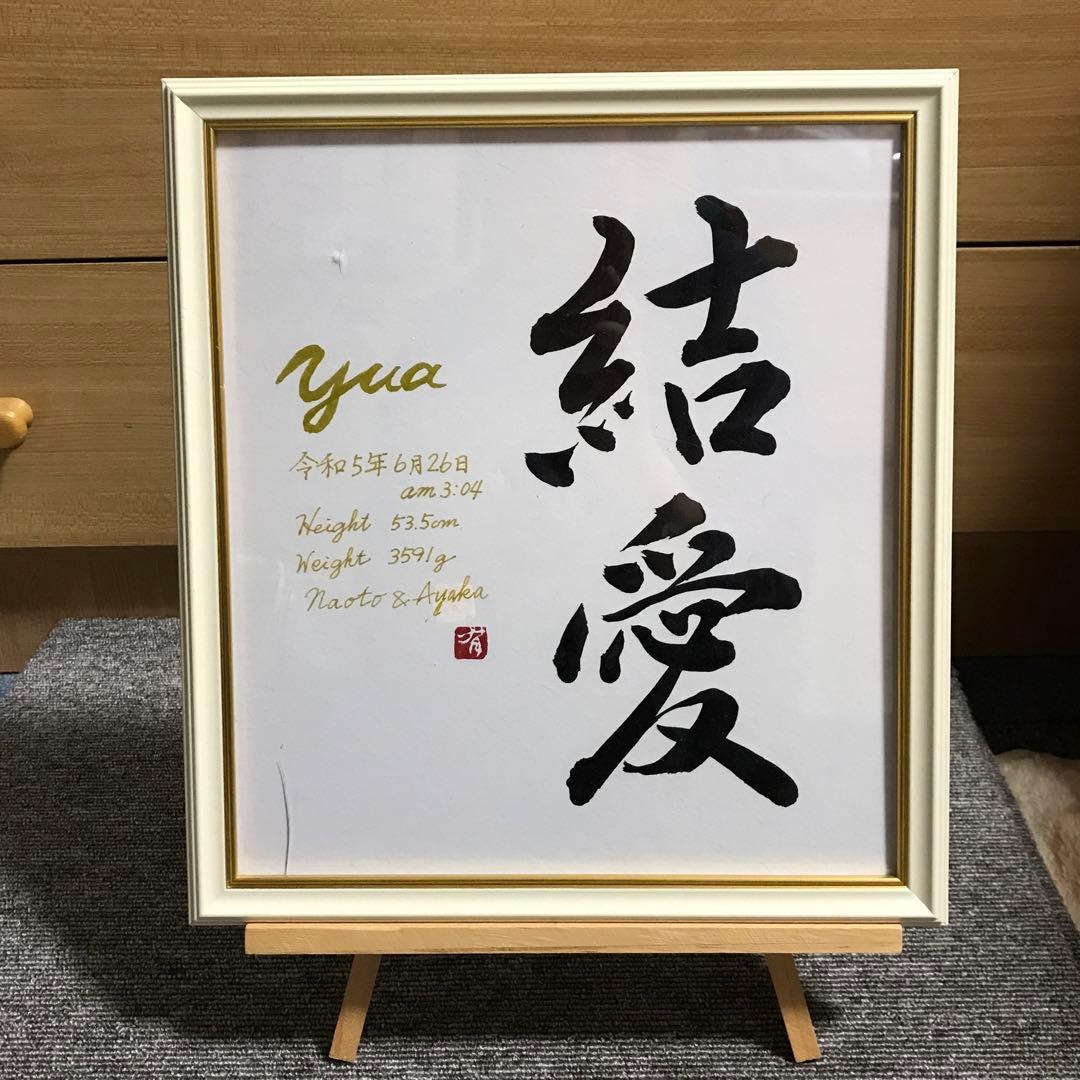 結愛
Yua
令和5年6月26日
am 3:04
Height 53.5cm
Weight 3591g
Naoto & Ayaka